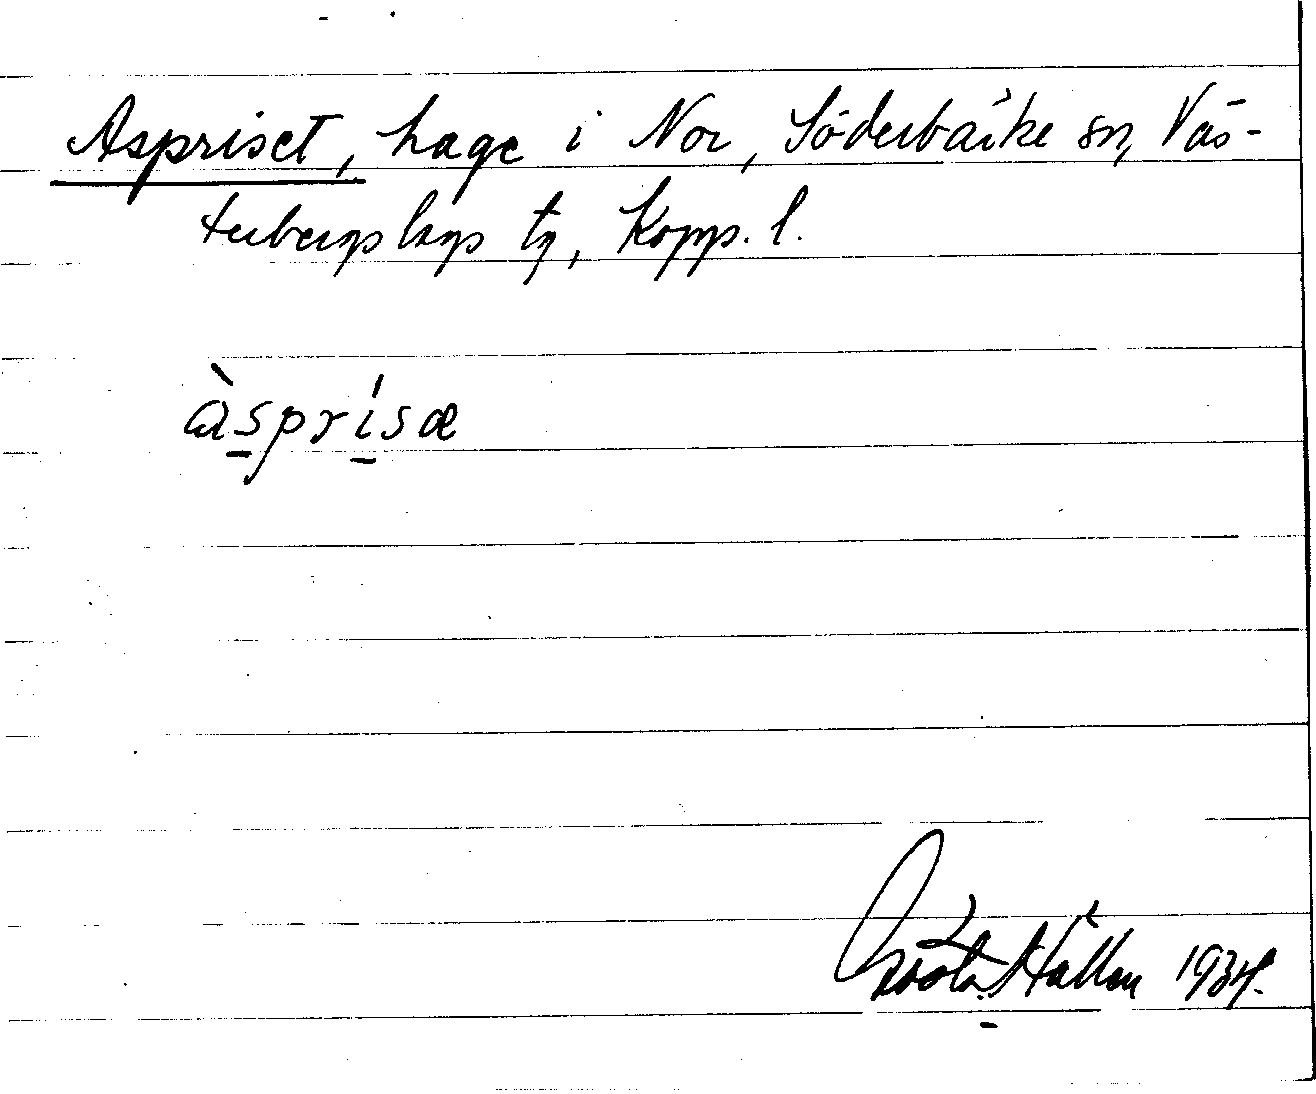 Aspriset, hage i Nor, Söderbärke sn, Väs-
terbergslags tg, Kopp. l.
àsprísæ
Gösta Hållen 1934.